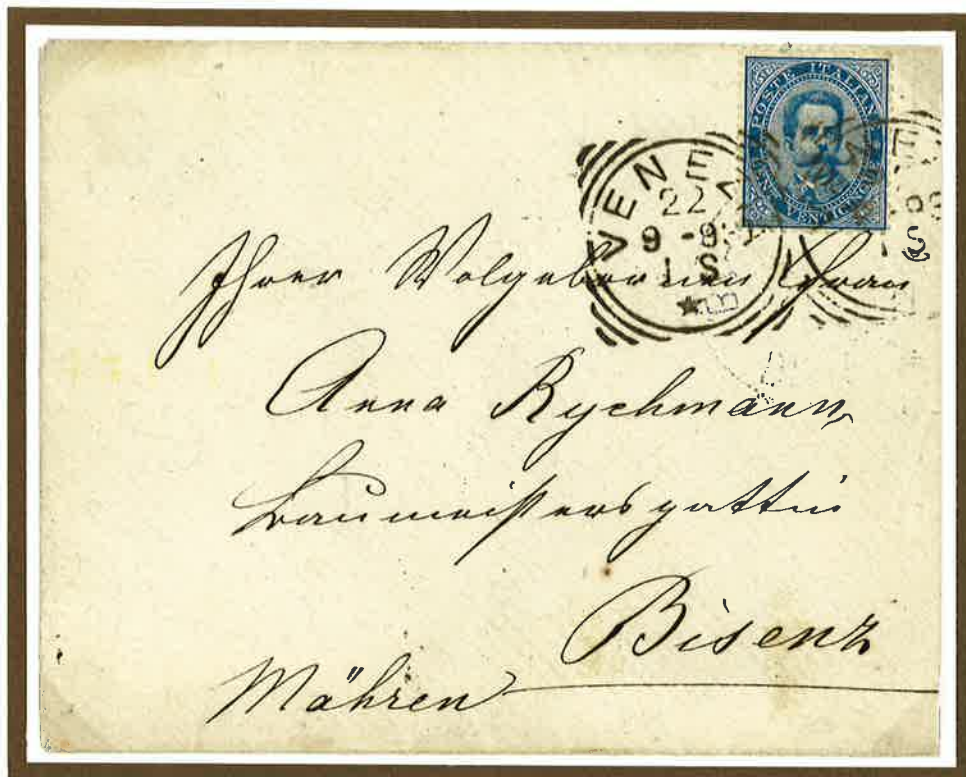 POSTE ITALIANE
CENT. VENTICINQUE
VENEZIA
22
9 - 9
1 S
Ihrer Wolgebornen Frau
Anna Rychmann
Baumeistersgattin
Bisenz
Mähren